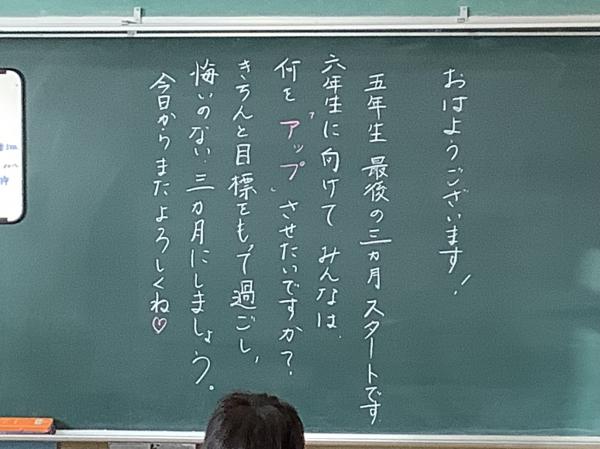 おはようございます!
五年生 最後の三ヵ月 スタートです
六年生に向けて みんなは、
何を「アップ」させたいですか?
きちんと目標をもって過ごし、
悔いのない 三ヵ月にしましょう。
今日からまたよろしくね♡